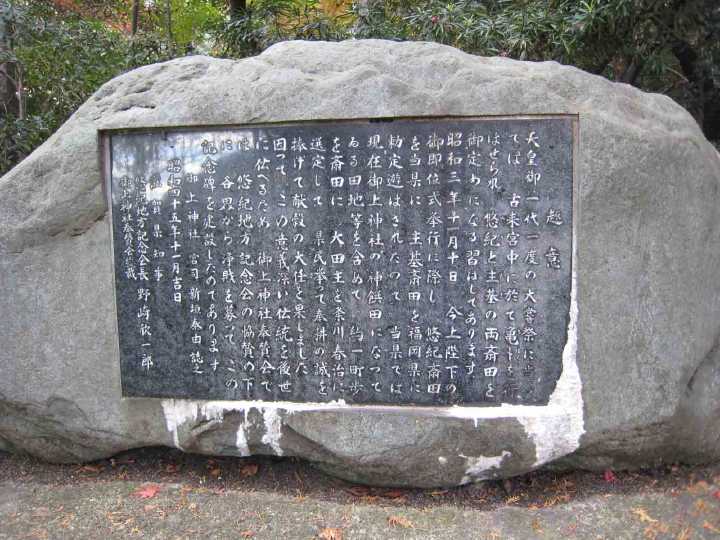 趣意
天皇御一代一度の大嘗祭に当
ては 古来宮中に於て亀卜を行
はせられ 悠紀と主基の両斎田を
御定めになる習はしであります
昭和三年十一月十日 今上陛下の
御即位式挙行に際し 悠紀斎田
を当県に 主基斎田を福岡県に
勅定遊ばされたので 当県では
現在御上神社の神饌田になって
ゐる田地等を含めて 約一町歩
を斎田に 大田主を粂川春治に
選定して 県民挙て奉耕の誠を
捧げて献穀の大任を果しました
因って この意義深い伝統を後世
に伝へるため 御上神社奉賛会で
は 悠紀地方記念会の協賛の下
に 各界から浄財を募って この
記念碑を建設したのであります
御上神社 宮司 新垣泰由 誌之
昭和四十五年十一月吉日
滋賀県知事
悠紀地方記念会長 野崎欣一郎
御上神社奉賛会総裁